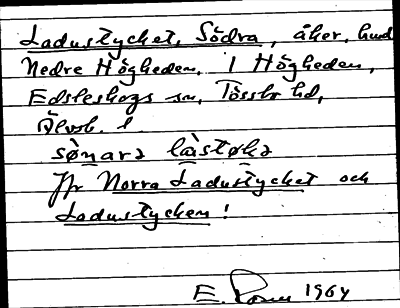 Ladustycket, Södra, åker, hmd
Nedre Högheden, i Högheden,
Edsleskogs sn, Tössbo hd,
Älvsb. l
sø̀nara làstøka
Jfr Norra Ladustycket och
Ladustycken!
E. 1964